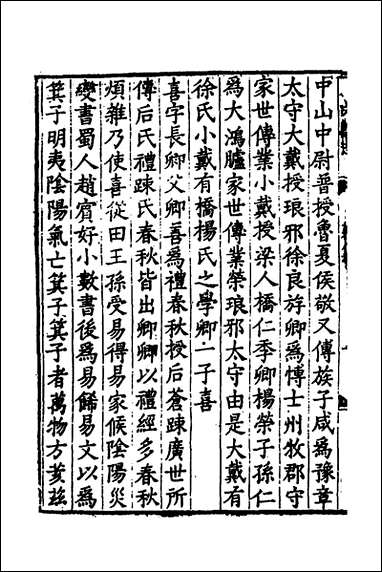 中山中尉普授魯夏侯敬又傳族子咸爲豫章
太守大戴授琅邪徐良斿卿爲愽士州牧郡守
家世傳業小戴授梁人橋仁季卿楊榮子孫仁
爲大鴻臚家世傳業榮琅邪太守由是大戴有
徐氏小戴有橋楊氏之學卿二子喜
喜字長卿父卿善爲禮春秋授后蒼踈廣世所
傳后氏禮踈氏春秋皆出卿卿以禮經多春秋
煩雜乃使喜從田王孫受易得易家候陰陽災
變書蜀人趙賓好小數書後爲易餙易文以爲
箕子明夷陰陽氣亡箕子箕子者萬物方荄兹